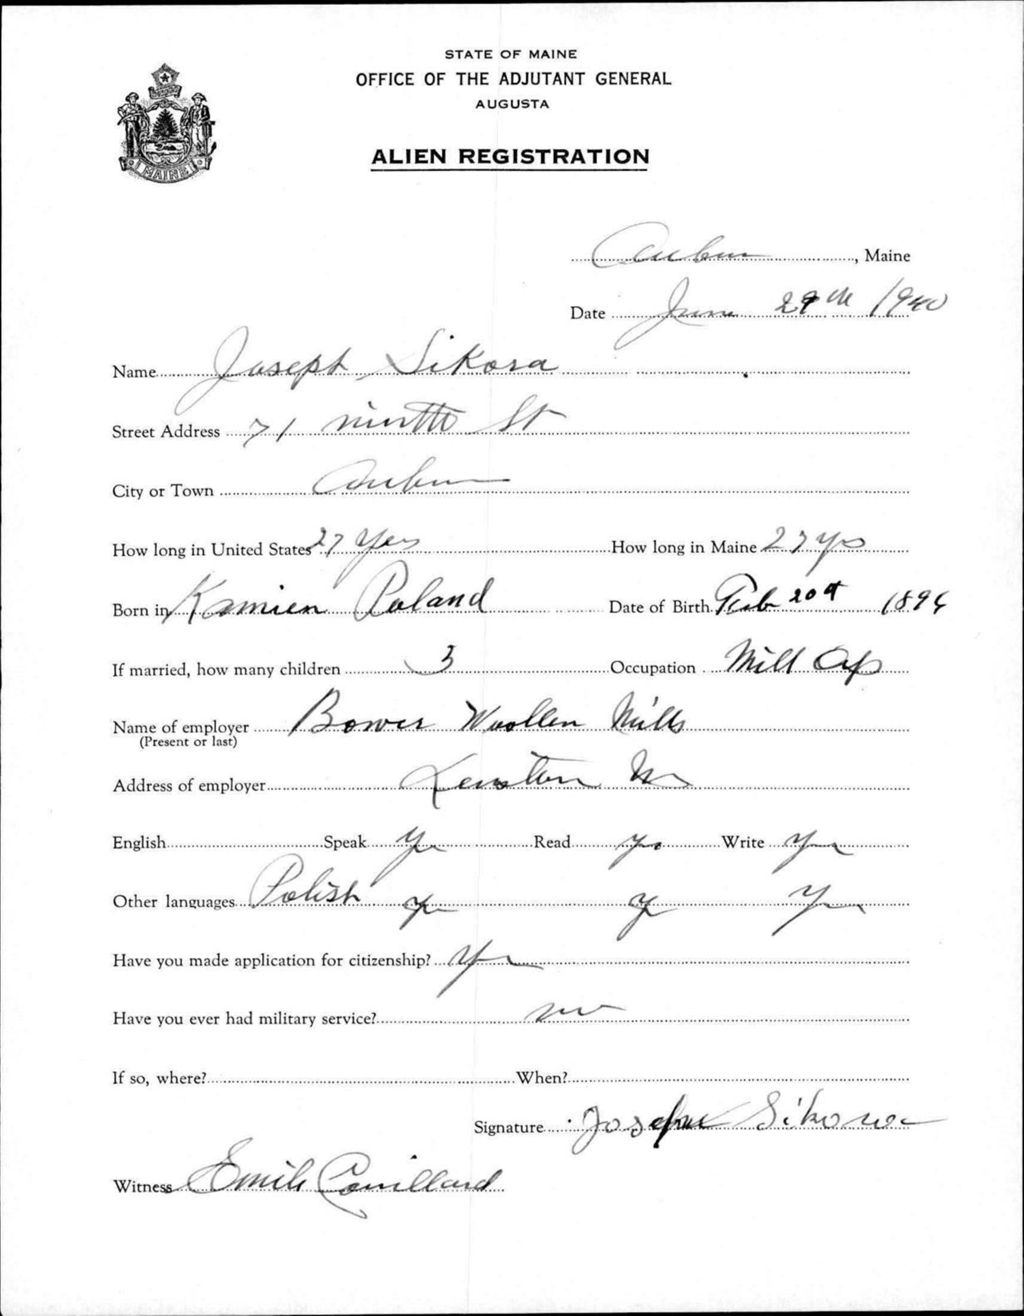 STATE OF MAINE
OFFICE OF THE ADJUTANT GENERAL
AUGUSTA
ALIEN REGISTRATION
MAINE
Auburn, Maine
Date June 29th 1940
Name Joseph Sikora
Street Address 71 Ninth St
City or Town Auburn
How long in United States 27 Yrs How long in Maine 27 yrs
Born in Kamien Poland Date of Birth Feb 20th 1896
If married, how many children 3 Occupation Mill Op
Name of employer Bower Woollen Mills
(Present or last)
Address of employer Lewiston Me
English Speak Yes Read Yes Write Yes
Other languages Polish Yes Yes Yes
Have you made application for citizenship? Yes
Have you ever had military service? no
If so, where? When?
Signature Joseph Sikora
Witness Emile Couillard